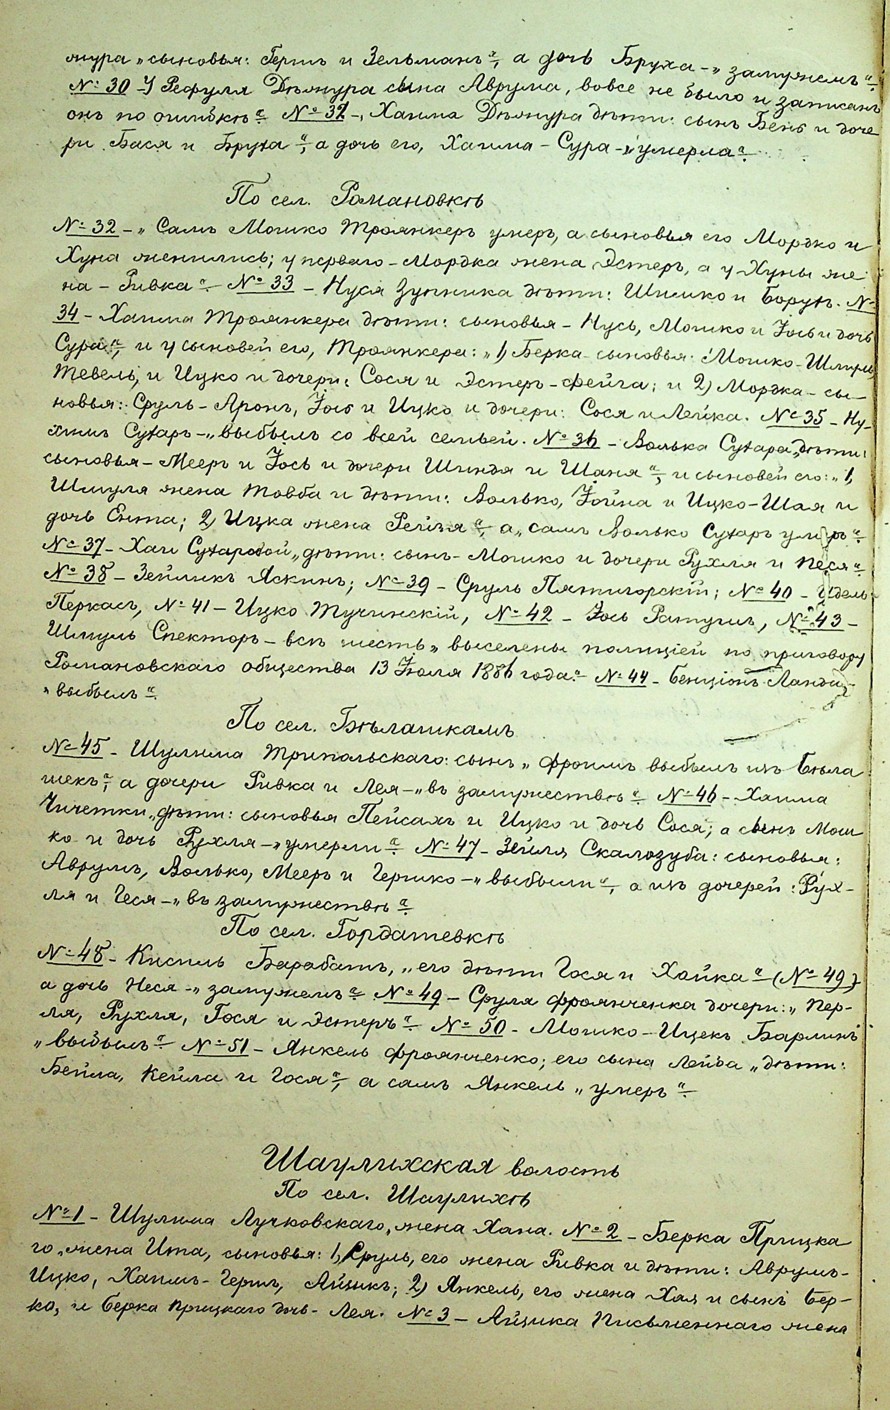 мура „сыновья: Герш и Зельманъ“, а дочь Бруха – „замужемъ“.
№ 30 – У Рефуля Дѣжура сына Аврума, вовсе не было и записанъ
онъ по ошибкѣ“. № 32 – „Хаима Дѣжура дѣти: сынъ Бень и доче
ри Бася и Бруха“, а дочь его, Хаима – Сура – „умерла“.
По сел. Романовкѣ
№ 32 – „Самъ Мошко Троянкеръ умеръ, а сыновья его Мордко и
Хуна женились; у перваго – Мордка жена Эстеръ, а у Хуны же
на – Ривка“. № 33 – Нуся Зупника дѣти: Шимко и Борухъ. №
34 – Хаима Троянкера дѣти: сыновья – Нусь, Мошко и Іось и дочь
Сура“, и у сыновей его, Троянкера: „1) Берка сыновья: Мошко-Шмуль
Тевель, и Ицко и дочери: Сося и Эстеръ-Фейга; и 2) Мордка – сы–
новья: Сруль-Аронъ, Іось и Ицко и дочери: Сося и Лейка. № 35 – Ну–
химъ Сухаръ – „выбылъ со всей семьей. № 36 – Волька Сухара „дѣти:
сыновья – Мееръ и Іось и дочери Шиндя и Шаня“, и сыновей его: „1)
Шмуля жена Товба и дѣти: Волько, Іойна и Ицко-Шая и
дочь Ента; 2) Ицка жена Рейзя“, а „самъ Волько Сухаръ умеръ“.
№ 37 – Хаи Сухаровой „дѣти: сынъ – Мошко и дочери Рухля и Неся“.
№ 38 – Зейликъ Яскинъ; № 39 – Сруль Пятигорскій; № 40 – Идель
Перкасъ, № 41 – Ицко Тучинскій, № 42 – Іось Ратушъ, № 43 –
Шмуль Спекторъ – всѣ шесть „выселены полиціей по приговору
Романовскаго общества 13 Іюля 1886 года“. № 44 – Бенціонъ Ланда
„выбылъ“.
По сел. Бѣлашкамъ
№ 45 – Шулима Трипольскаго: сынъ „Фроимъ выбылъ изъ Бѣла
шекъ“, а дочери Ривка и Лея – „въ замужествѣ“. № 46 – Хаима
Чичетки „дѣти: сыновья Пейсахъ и Ицко и дочь Сося; а сынъ Мош
ко и дочь Рухля – „умерли“. № 47 – Зейля Скалозуба: сыновья:
Аврумъ, Волько, Мееръ и Гершко – „выбыли“, а изъ дочерей: Рух–
ля и Геся – „въ замужествѣ“.
По сел. Гордашевкѣ
№ 48 – Кисиль Барабашъ, „его дѣти Гося и Хайка“ (№ 49)
а дочь Неся – „замужемъ“. № 49 – Сруля Фроянченка дочери: „Пер–
ля, Рухля, Гося и Эстеръ“. № 50 – Мошко-Ицекъ Барликъ
„выбылъ“. № 51 – Янкель Фроянченко; его сына Лейба „дѣти:
Бейла, Кейла и Гося“, а самъ Янкель „умеръ“.
Шаулихская волость
По сел. Шаулихѣ
№ 1 – Шулима Лучковскаго, жена Хана. № 2 – Берка Прицка
го, жена Ита, сыновья: 1) Сруль, его жена Ривка и дѣти: Аврумъ-
Ицко, Хаимъ-Гершъ, Айзикъ; 2) Янкель, его жена Хая и сынъ Бер–
ко, и Берка Прицкаго дочь – Лея. № 3 – Айзика Письменнаго жена